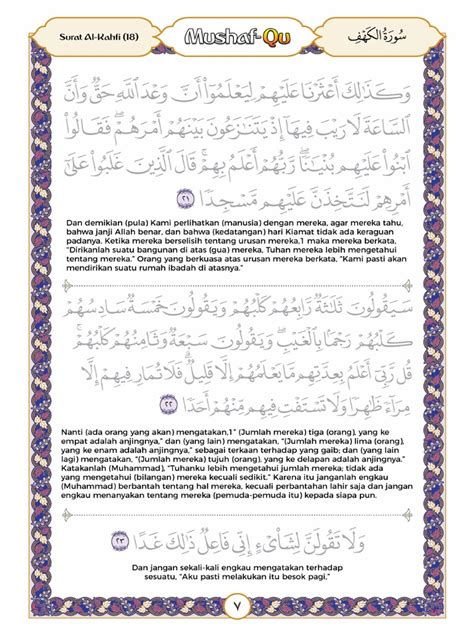 Surat Al-Kahfi (18)
Mushaf-Qu
سُورَةُ الْكَهْفِ
وَكَذَٰلِكَ أَعْثَرْنَا عَلَيْهِمْ لِيَعْلَمُوٓا۟ أَنَّ وَعْدَ ٱللَّهِ حَقٌّ وَأَنَّ
ٱلسَّاعَةَ لَا رَيْبَ فِيهَآ إِذْ يَتَنَٰزَعُونَ بَيْنَهُمْ أَمْرَهُمْ ۖ فَقَالُوا۟
ٱبْنُوا۟ عَلَيْهِم بُنْيَٰنًا ۖ رَّبُّهُمْ أَعْلَمُ بِهِمْ ۚ قَالَ ٱلَّذِينَ غَلَبُوا۟ عَلَىٰٓ
أَمْرِهِمْ لَنَتَّخِذَنَّ عَلَيْهِم مَّسْجِدًا ٢١
Dan demikian (pula) Kami perlihatkan (manusia) dengan mereka, agar mereka tahu,
bahwa janji Allah benar, dan bahwa (kedatangan) hari Kiamat tidak ada keraguan
padanya. Ketika mereka berselisih tentang urusan mereka,1 maka mereka berkata,
"Dirikanlah suatu bangunan di atas (gua) mereka, Tuhan mereka lebih mengetahui
tentang mereka." Orang yang berkuasa atas urusan mereka berkata, "Kami pasti akan
mendirikan suatu rumah ibadah di atasnya."
سَيَقُولُونَ ثَلَٰثَةٌ رَّابِعُهُمْ كَلْبُهُمْ وَيَقُولُونَ خَمْسَةٌ سَادِسُهُمْ
كَلْبُهُمْ رَجْمًۢا بِٱلْغَيْبِ ۖ وَيَقُولُونَ سَبْعَةٌ وَثَامِنُهُمْ كَلْبُهُمْ ۚ
قُل رَّبِّىٓ أَعْلَمُ بِعِدَّتِهِم مَّا يَعْلَمُهُمْ إِلَّا قَلِيلٌ ۗ فَلَا تُمَارِ فِيهِمْ إِلَّا
مِرَآءً ظَٰهِرًا وَلَا تَسْتَفْتِ فِيهِم مِّنْهُمْ أَحَدًا ٢٢
Nanti (ada orang yang akan) mengatakan,1" (Jumlah mereka) tiga (orang), yang ke
empat adalah anjingnya," dan (yang lain) mengatakan, "(Jumlah mereka) lima (orang),
yang ke enam adalah anjingnya," sebagai terkaan terhadap yang gaib; dan (yang lain
lagi) mengatakan, "(Jumlah mereka) tujuh (orang), yang ke delapan adalah anjingnya."
Katakanlah (Muhammad), "Tuhanku lebih mengetahui jumlah mereka; tidak ada
yang mengetahui (bilangan) mereka kecuali sedikit." Karena itu janganlah engkau
(Muhammad) berbantah tentang hal mereka, kecuali perbantahan lahir saja dan jangan
engkau menanyakan tentang mereka (pemuda-pemuda itu) kepada siapa pun.
وَلَا تَقُولَنَّ لِشَا۟ىْءٍ إِنِّى فَاعِلٌ ذَٰلِكَ غَدًا ٢٣
Dan jangan sekali-kali engkau mengatakan terhadap
sesuatu, "Aku pasti melakukan itu besok pagi,"
٧